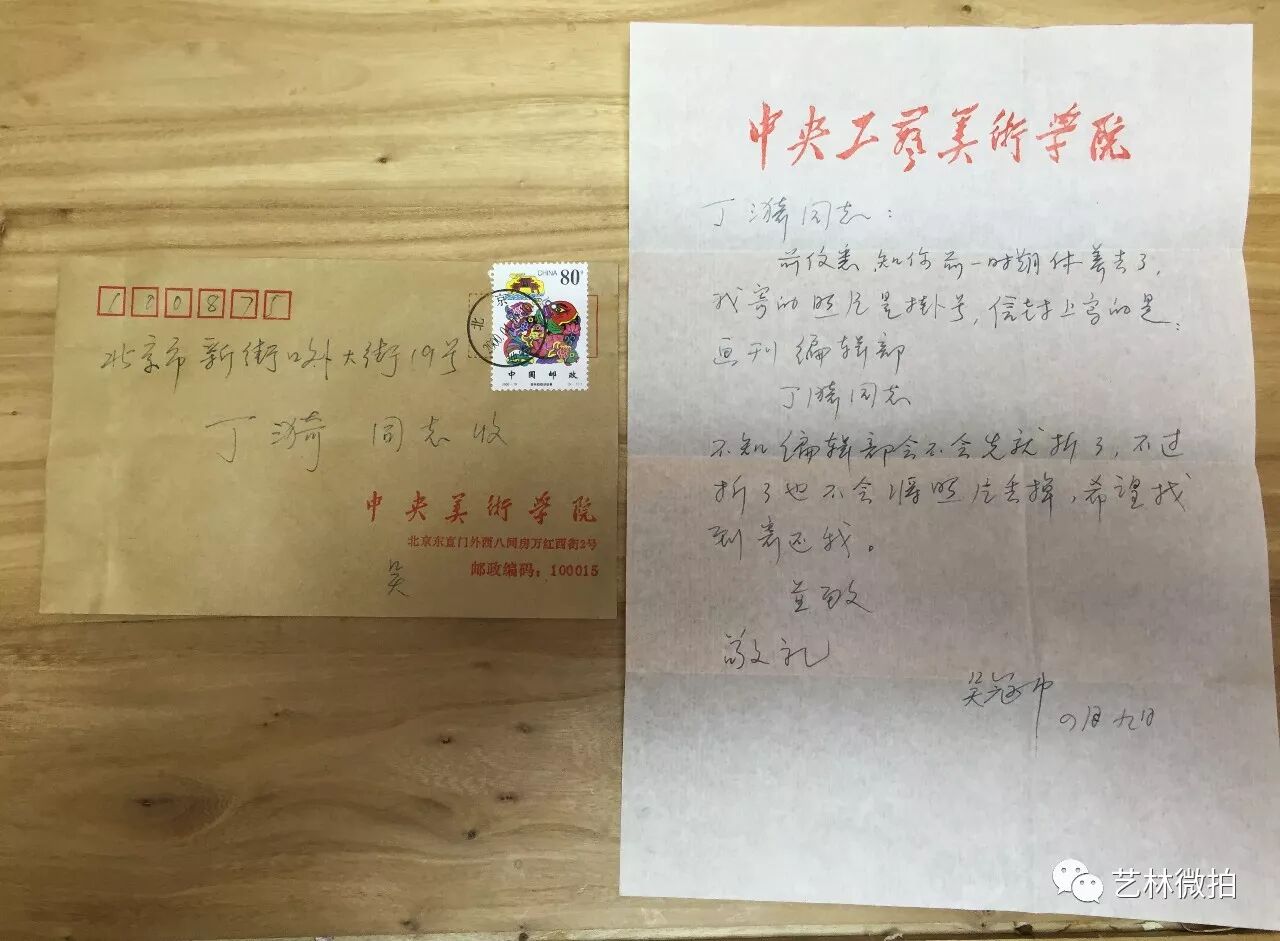 100875
北京市新街口外大街19号
丁漪同志收
中央美術学院
北京东直门外西八间房万红西街2号
邮政编码：100015
吴
CHINA 80
北京
中国邮政
中央工艺美術学院
丁漪同志：
前仅悉，知你前一时期休养去了，
我寄的照片是挂号，信封上写的是：
画刊编辑部
丁漪同志
不知编辑部会不会先就拆了，不过
拆了也不会将照片丢掉，希望找
到寄还我。
并致
敬礼
吴冠中
四月九日
艺林微拍